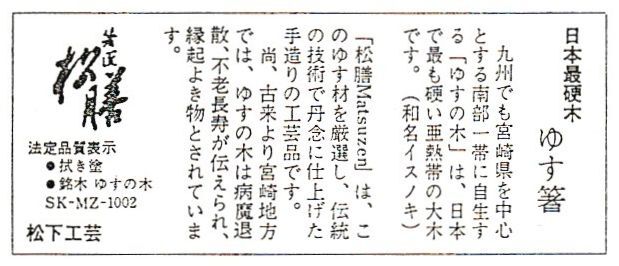 日本最硬木
ゆす箸
九州でも宮崎県を中心
とする南部一帯に自生す
る「ゆすの木」は、日本
で最も硬い亜熱帯の大木
です。（和名イスノキ）
「松膳Matsuzen」は、こ
のゆす材を厳選し、伝統
の技術で丹念に仕上げた
手造りの工芸品です。
尚、古来より宮崎地方
では、ゆすの木は病魔退
散、不老長寿が伝えられ、
縁起よき物とされていま
す。
松膳
法定品質表示
●拭き塗
●銘木 ゆすの木
SK-MZ-1002
松下工芸